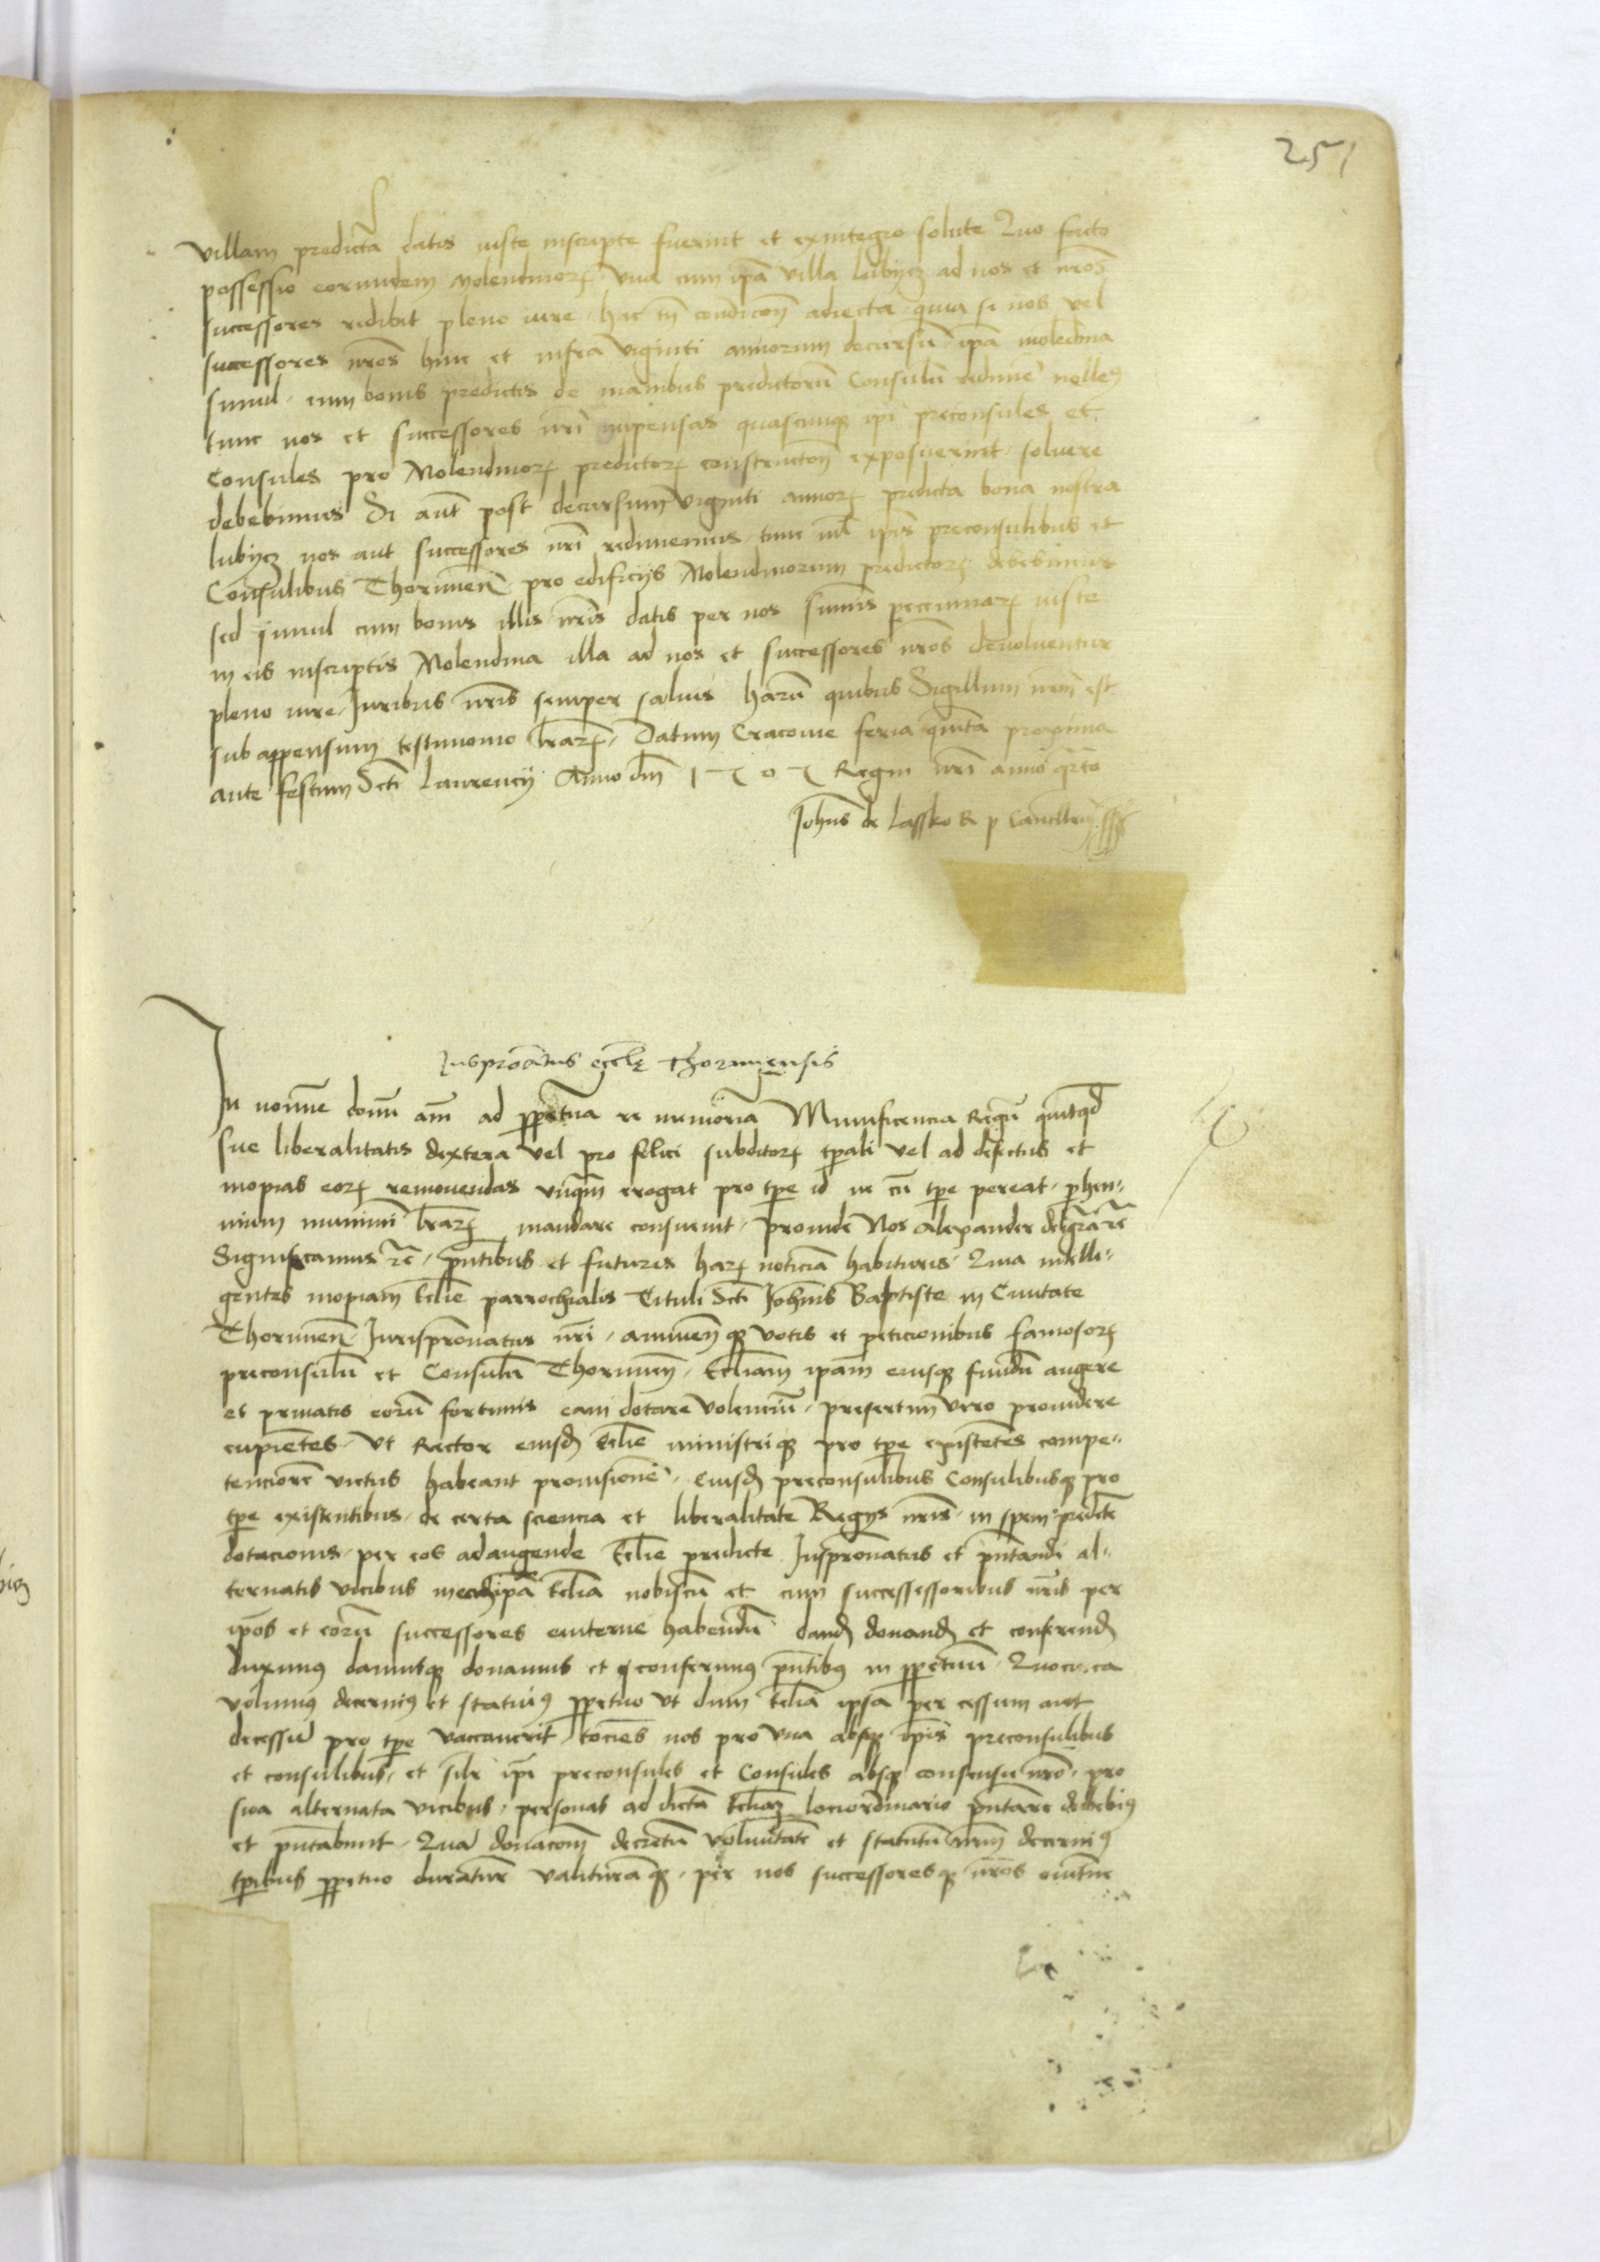 251
villam predictā datis iuste inscripte fuerint et exintegro solute Quo facto
possessio eorumdem Molendinorꝝ vna cum ip̄a villa Lubycz ad nos et nr̄os
successores redibit pleno iure, hac tn̄ condicōē adiecta quia si nos vel
successores nr̄os hinc et infra viginti annorum decursū ip̄a molendina
simul cum bonis predictis de manibus predictorū Consulū redimē nollem9
tunc nos et successores nr̄i impensas quascunqꝫ ip̄i preconsules et
Consules pro Molendinorꝝ predictorꝝ constructōe exposuerint soluere
debebimus Si aūt post decursum viginti annorꝝ predicta bona nostra
lubycz nos aut successores nr̄i redimemus, tunc nil ip̄is preconsulibus et
Consulibus Thorunen̄ pro edificijs Molendinorum predictorꝝ debebimus
sed simul cum bonis illis nr̄is datis per nos sumis pecuniarꝝ iuste
in eis inscriptis Molendina illa ad nos et successores nr̄os deuoluentur
pleno iure, Juribus nr̄is semper saluis harū quibus Sigillum nr̄m est
sub appensum testimonio lr̄arꝝ. Datum Cracouie feria quinta proxima
ante festum Scti Laurencij Anno dn̄i 1505 Regni nr̄i anno q̄rto
Joh̄ns de Lassko R p Cancellariꝰ sst
Juspronātus eccl̄ę Thorunensis
In nomine domī am̄ ad ꝑpetua rei memoriā Munificencia Regū quitqd
sue liberalitatis dextera vel pro felici subditorꝝ tp̄ali vel ad defectus et
inopias eorꝝ remouendas vnq̄m erogat pro tp̄e id ne cū tp̄e pereat, ꝑhen-
nium munimī lr̄arꝝ mandare consueuit, proinde Nos Alexander dei gr̄a rc̄
Significamus rc̄, pn̄tibus et futuris harꝝ noticiā habituris Quia intelli-
gentes inopiam Eccl̄ie parrochialis Tituli Scti Joh̄nis Baptiste in Ciuitate
Thorunen̄ Jurispronatus nr̄i, annuen̄qꝫ votis et peticionibus famosorꝝ
preconsulū et Consulū Thorunen̄, Eccl̄iam ip̄am eiusqꝫ fundū augere
et priuatis eorū fortunis eam dotare volenciū, presertim vero prouidere
cupientes, vt Rector eiusdꝫ Eccl̄ie ministriqꝫ pro tp̄e existentes compe-
tenciorē victus habeant prouisionē, Eiusdꝫ preconsulibus Consulibusqꝫ pro
tp̄e existentibus, de certa sciencia et liberalitate Regijs nr̄is, in spem predicte
dotacionis, per eos adaugende Eccl̄ie predicte Juspronatus et pn̄tandi al-
ternatis vicibus in ip̄a Eccl̄ia nobiscū et cum successessoribus nr̄is per
ip̄os et eorū successores euiterne habendū dandꝫ donandꝫ et conferendꝫ
duximꝰ damusqꝫ donamus et conferimꝰ pn̄tibꝰ in ꝑpetuū, Quocirca
volumꝰ decernimꝰ et statuimꝰ ꝑpetuo vt dum Eccl̄ia ipsa per cessum aut
decessū pro tp̄e vaccauerit tocies nos pro vna absqꝫ ip̄is preconsulibus
et consulibus, et silr̄ ip̄i preconsules et Consules absqꝫ consensu nr̄o, pro
sua alternata vicibus, personas ad dictā Eccl̄iaꝫ lociordinario pn̄tare debebimꝰ
et pn̄tabunt, Quā donacōm decretū voluntatē et statutū nr̄m decernimꝰ
tp̄ibus ꝑpetuo duratur̄ valiturāqꝫ, per nos successoresqꝫ nr̄os euiterne